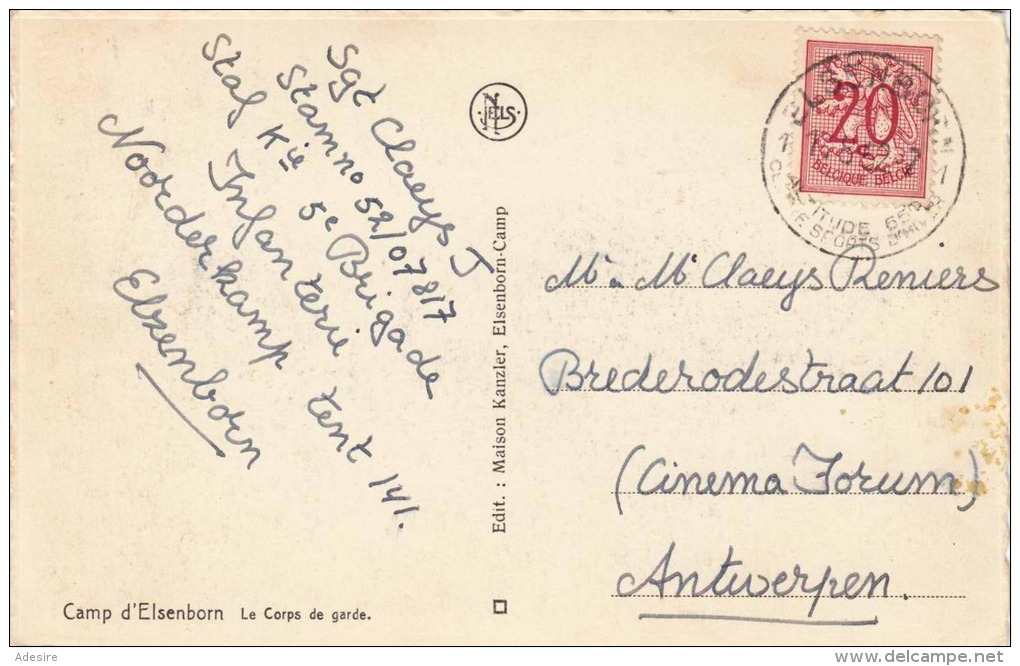 Sgt Claeys J
Stamno 52/07817
Staf Kie 5e Brigade
Infanterie
Noorderkamp tent 141.
Elzenborn
NELS
Edit. : Maison Kanzler, Elsenborn-Camp
20
BELGIQUE-BELGIË
ALTITUDE
SPORTS D'HIVER
Mr. Me Claeys Reniers
Brederodestraat 101
(Cinema Forum)
Antwerpen.
Camp d'Elsenborn Le Corps de garde.
Adesire
delcampe.net